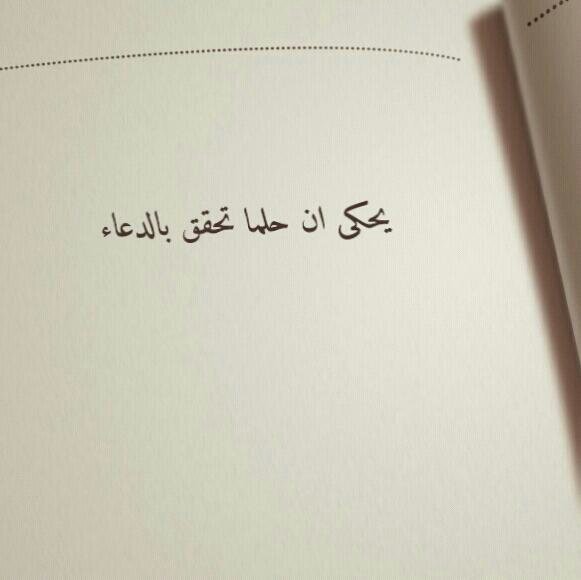 يحكى ان حلما تحقق بالدعاء